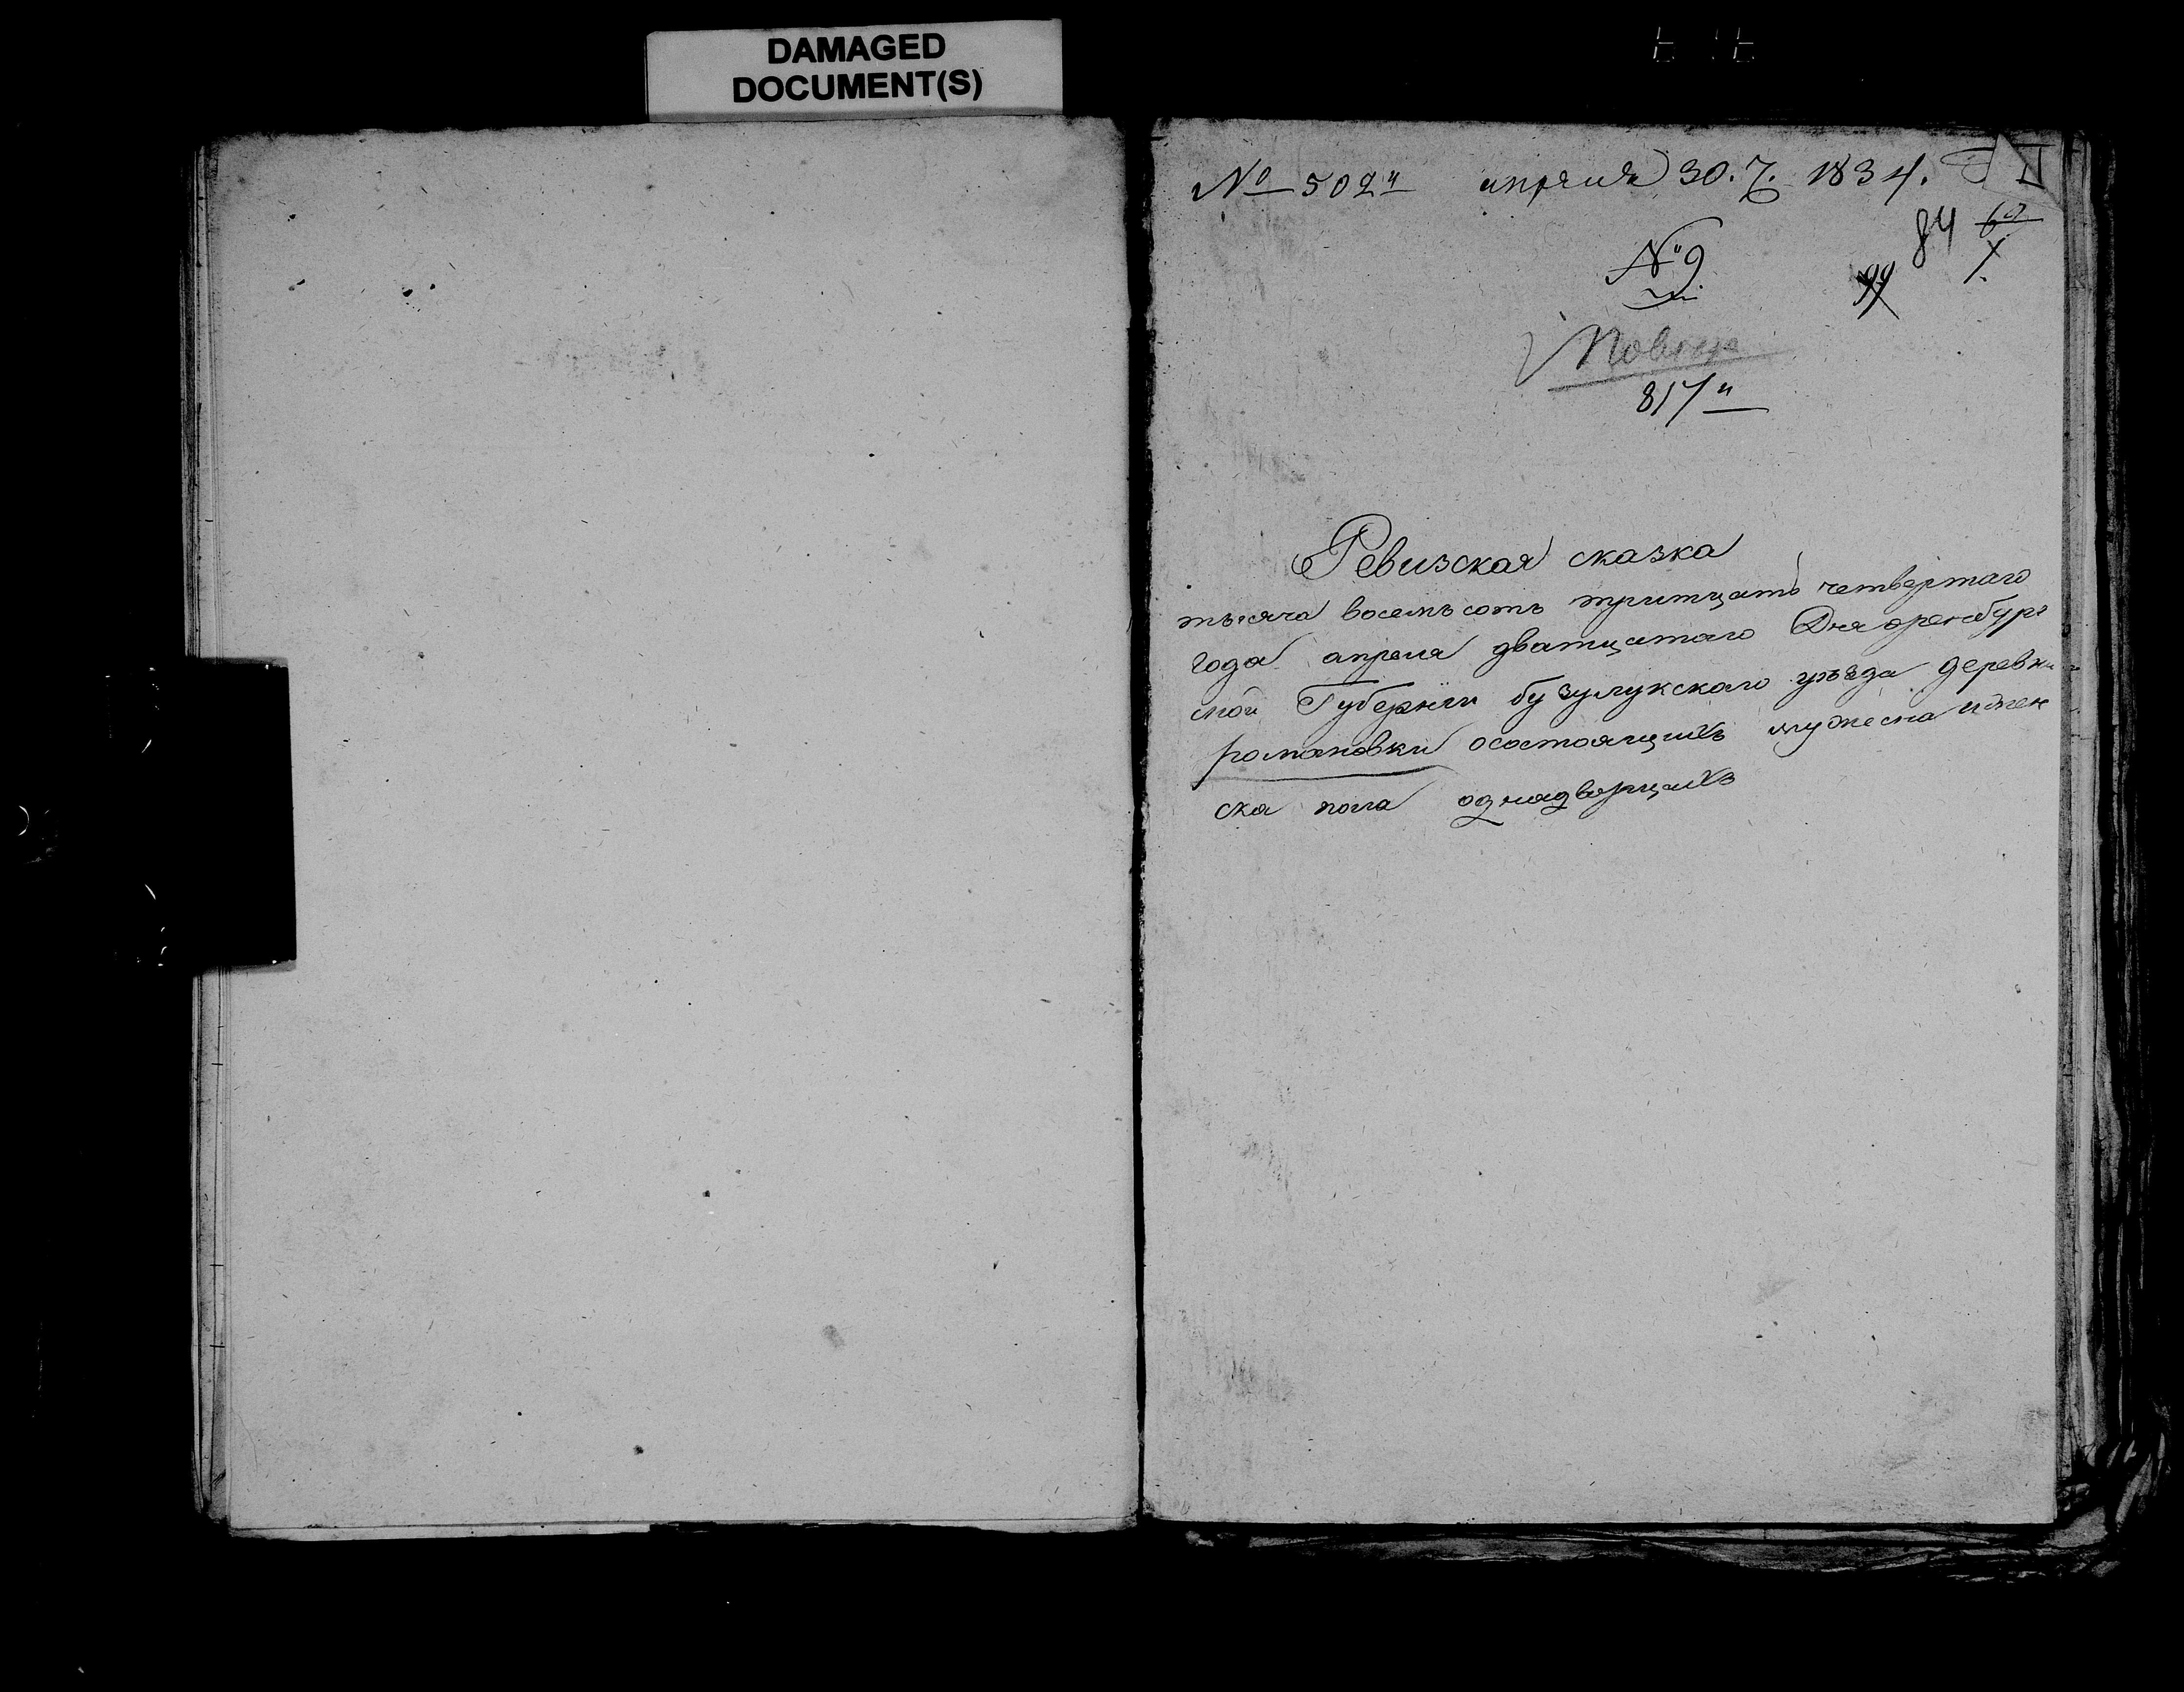 DAMAGED
DOCUMENT(S)
№ 502й апреля 30. 1834.
84
№ 9
99
817
Ревизская сказка
тысяча восемь сотъ тритцать четвертаго
года апреля дватцатаго Дня оренбург
ской Губернiи бузулукскаго уѣзда деревни
романовки осостоящихъ мужеска ижен
ска пола однадворцахъ